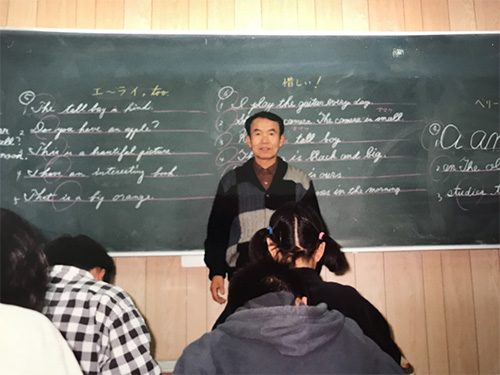 エ〜ライ、
1 The tall boy is kind.
2 Do you have an apple?
3 This is a beautiful picture.
4 I have an interesting book
5 That is a big orange.
惜しい!
1 I play the guitar every day
2 camera. The camera is small.
tall boy
is black and big.
is ours
in the morning
a an
an The
3 studies